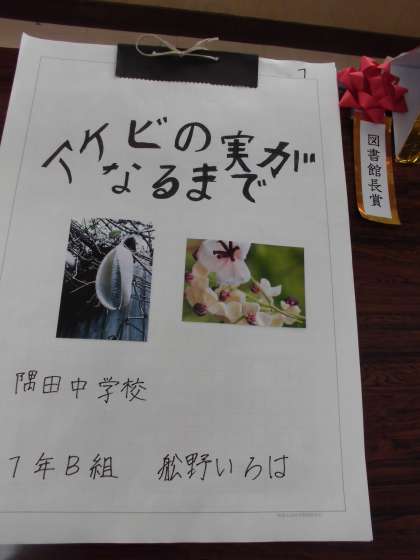 アケビの実が
なるまで
図書館長賞
隅田中学校
1年B組 舩野いろは